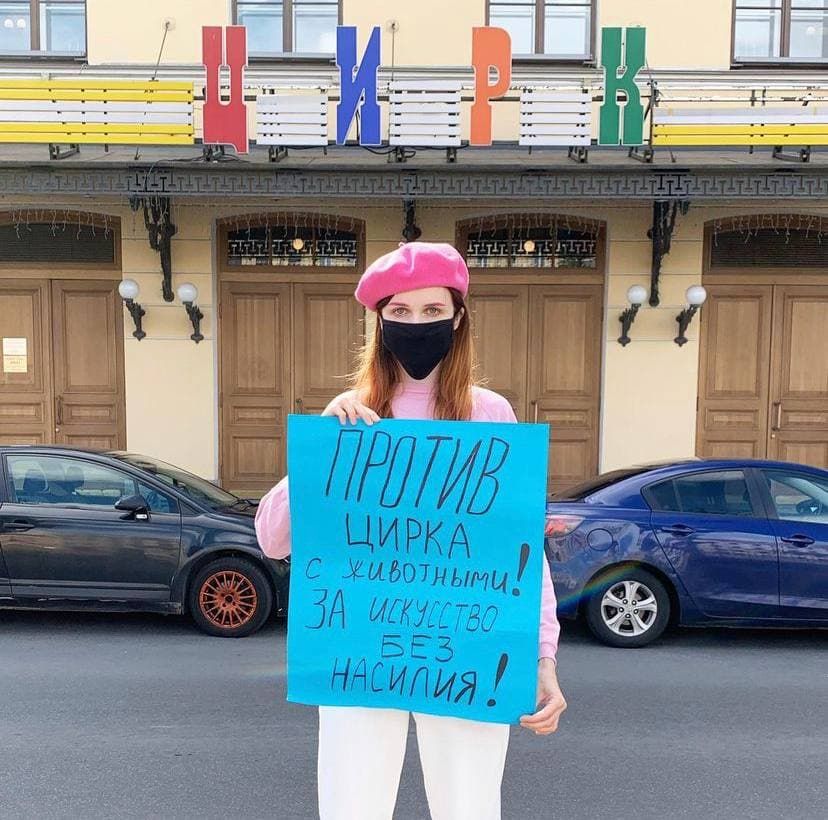 ЦИРК
ПРОТИВ
ЦИРКА
С ЖИВОТНЫМИ!
ЗА ИСКУССТВО
БЕЗ
НАСИЛИЯ!